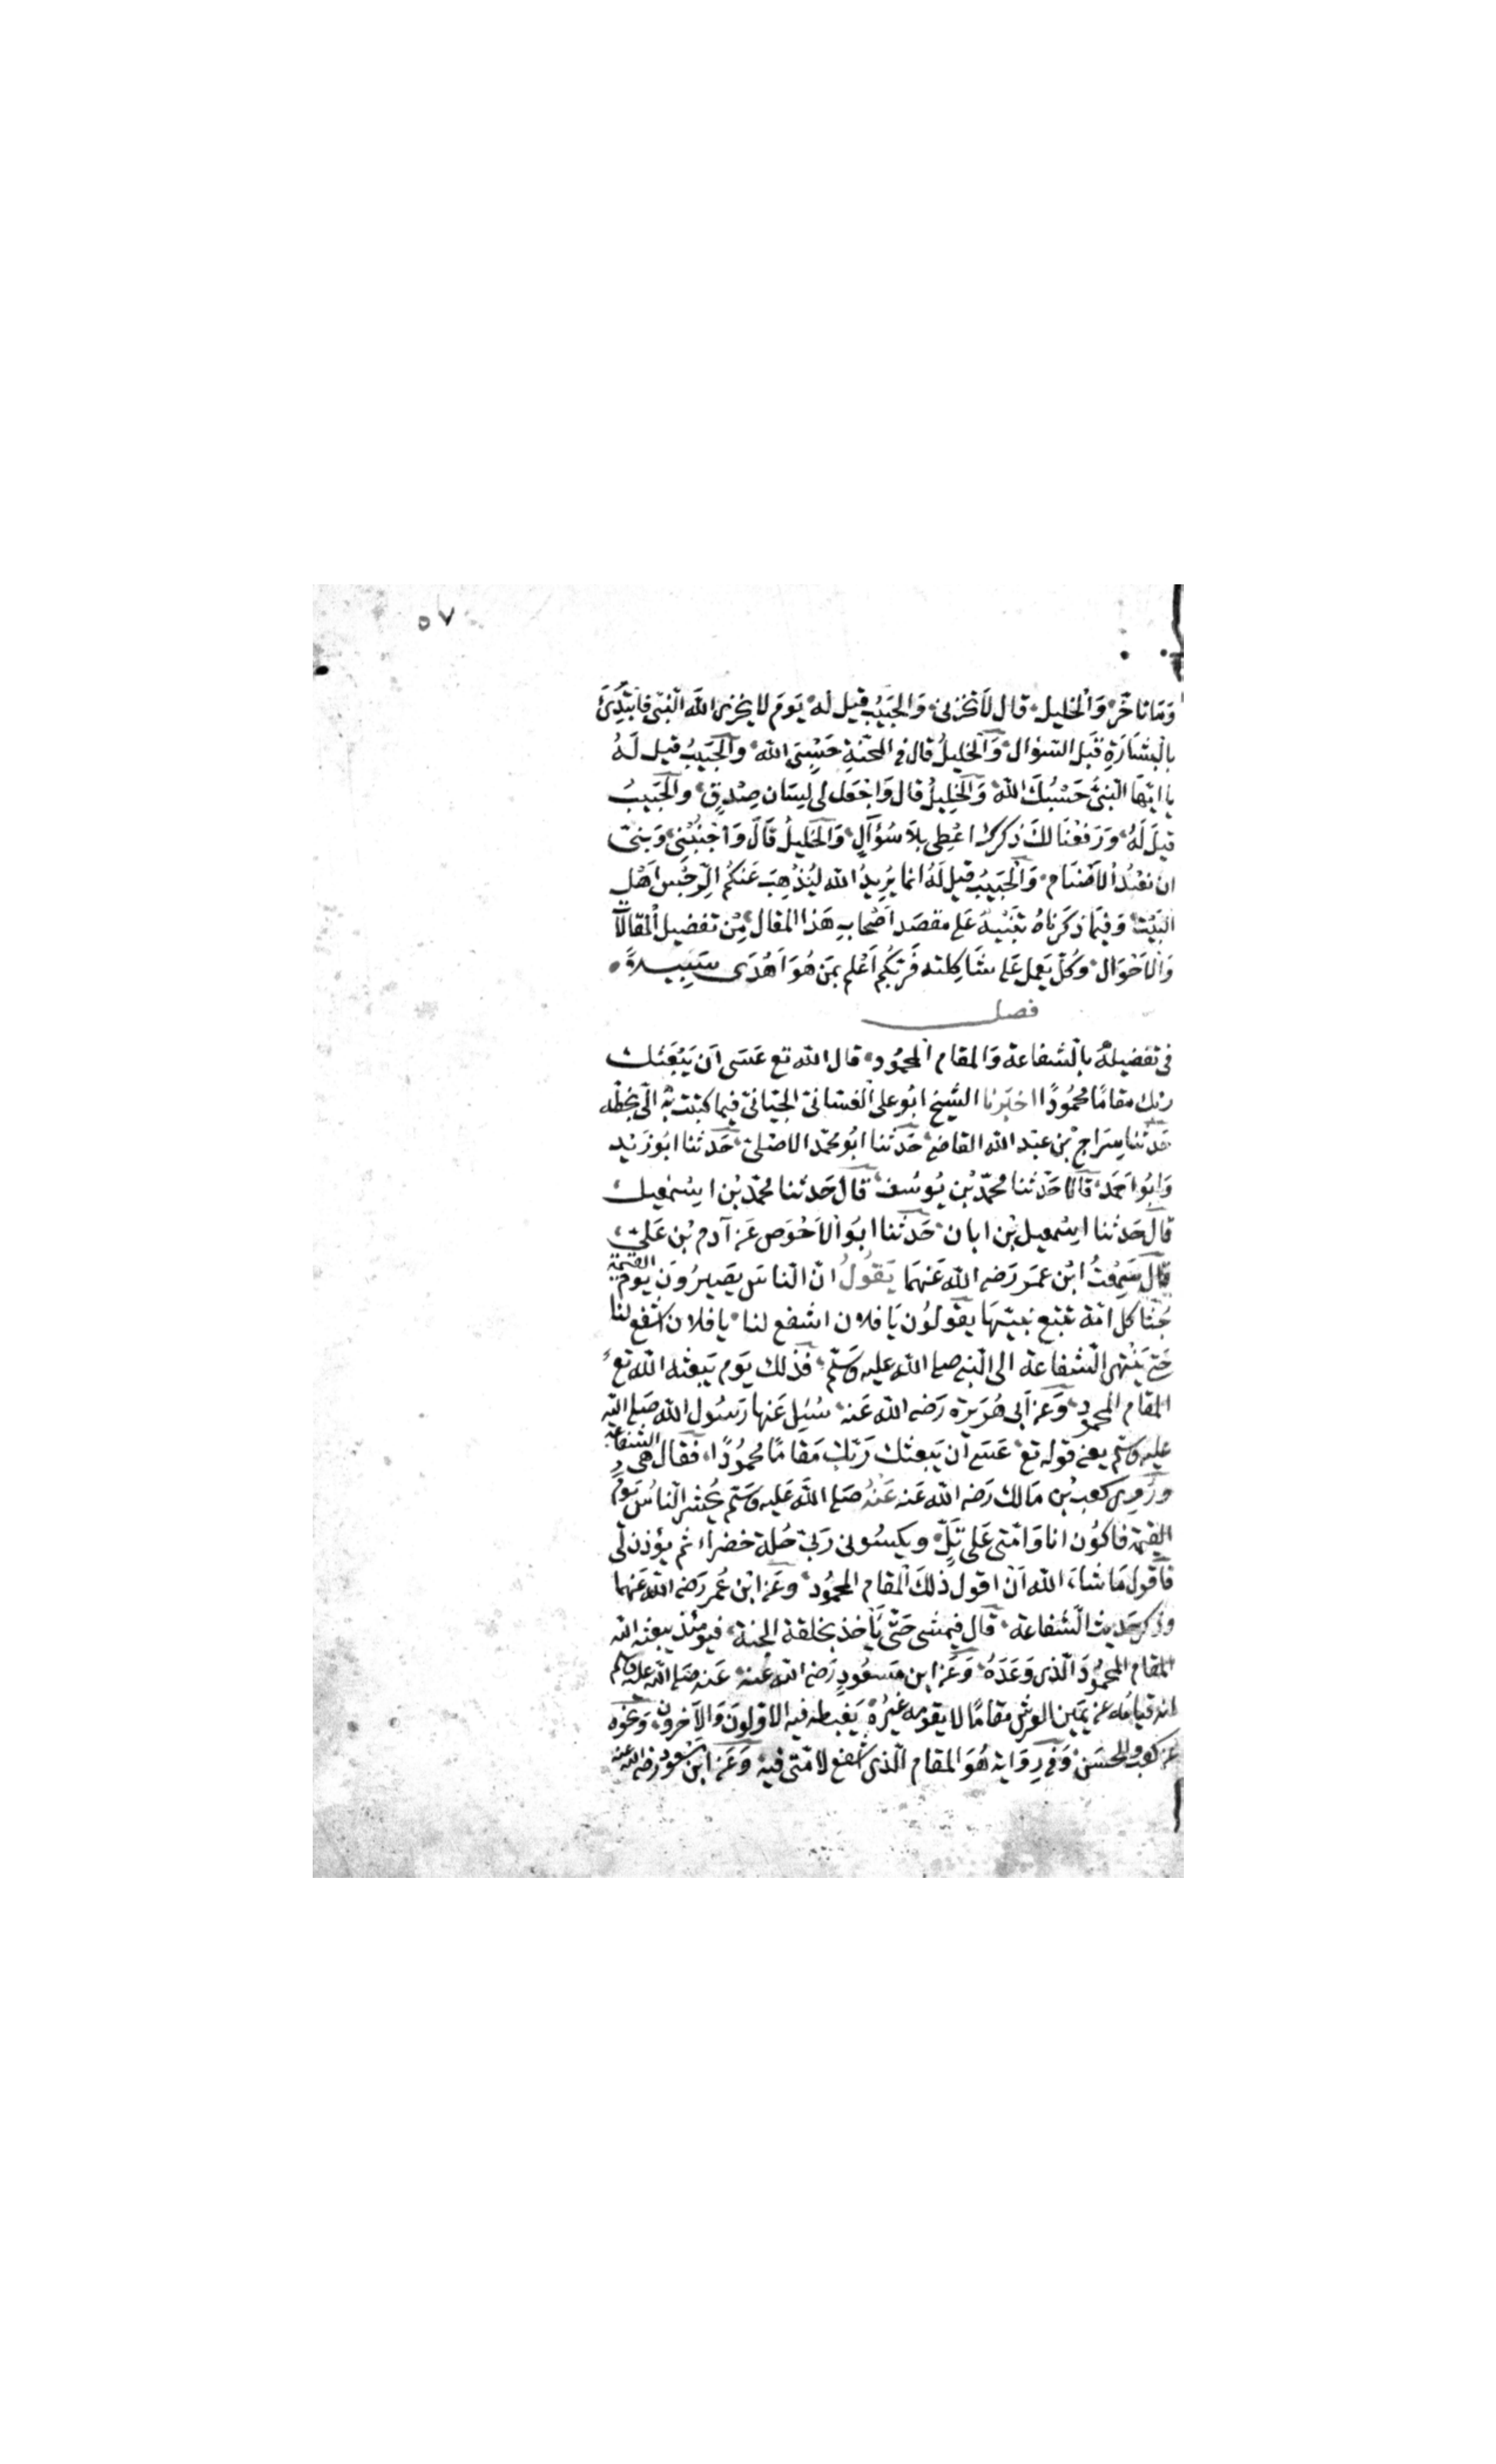 ٥٧
وَمَا تَاخَّرَ وَالْخَلِيل قال لَا تُخْزِنى وَالْحَبِيبُ قيل له يَومَ لا يُخْزى الله النَّبِيّ فابتُدِئَ
بِالْبَشَارَةِ قَبْلَ السُّؤَال وَالْخَلِيلُ قال فِى الْمِحْنَةِ حَسْبِيَ الله وَالْحَبِيبُ قيل لَهُ
يا ايّهَا النَّبِىُّ حَسْبُكَ اللهُ وَالْخَلِيلُ قال وَاجْعَل لى لِسَان صِدْقٍ وَالْحَبِيبُ
قِيلَ لَهُ وَرَفَعْنَا لَكَ ذِكْرَكَ اعْطِى بِلَا سُؤَالٍ وَالْخَلِيلُ قَالَ وَاجْنُبْنِى وَبَنِىَّ
ان نَعْبُدَ الاَصْنَام وَالْحَبِيبُ قيل لَهُ انما يُرِيدُ الله لِيُذْهِبَ عَنْكُم الرِّجْسَ اَهْل
البَيْتِ وَفِيمَا ذكَرْنَاهُ تَنْبِيهٌ عَلى مقصَد اَصْحَابِ هَذَا المقال مِنْ تفضيل المَقَامَات
وَالاَحْوَال وَكُلّ يَعمل عَلى شَاكِلته فَرَبُّكُم اَعْلم بِمَن هُوَ اَهْدَى سَبِيلاً
فصل
فى تفضيلهُ بالشَّفاعة وَالمقام المحمُود قال الله تع عَسَى اَن يَبْعَثَك
ربّك مقامًا محمُودًا اخبَرَنا الشَّيخ ابُو على الغسّانى الجيّانىّ فيما كتبَ بِهِ الىّ بخطّه
حَدثنا سِرَاج بْن عبْد الله القاضى حَدّثنا ابُو محمّد الاصْلىّ حَدثنا ابُو زَيْد
وَابُو احَمد قالا حَدّثنا محمّد بْن يُوسُف قال حَدثنا محمّد بْن اسْمٰعيل
قال حَدثنا اسْمعيل بْن ابان حَدّثنا ابو الاَحْوَص عَن آدم بْن عَلىّ
قال سَمِعْتُ ابْن عمَر رَضى الله عَنهمَا يَقُولُ انّ النّاسَ يَصيرُونَ يَوم القيٰمة
جُثًا كل امّة تتبع نبيّهَا يقُولُون يَا فلان اشفع لنا يا فلان اشفع لنا
حَتّى يَنْتَهى الشَّفاعة الى النّبى صلى الله عليه وَسَلم فذلك يَوم يَبعثه الله تع
المقام المحمود وَعَن اَبى هُرَيرَة رَضى الله عَنه سُئِل عَنها رَسُول الله صَلى الله
عليه وسلم يعنى قوله تع عَسَى اَن يَبعثك رَبّك مَقامًا محمُودًا فقال هى الشفاعة
ورَوى كعب بْن مَالك رَضى الله عَنه عَنْهُ صَلى الله عَليه وَسَلّم يُحْشر النّاسُ يَوْمَ
القيٰمة فاكُون انا وَامّتى عَلى تَلٍّ ويكسُونى رَبّى حُلة خضراء ثم يؤذن لى
فاَقول مَا شاء الله اَنْ اقول ذلكَ المقام المحمُود وعَن ابْن عُمر رَضى الله عَنهما
وذكر حَديث الشفاعة قال فيمشى حَتّى يَأخذ بحلقة الجنّة فيومئذ يبعثه الله
المقام المحمُودَ الّذى وَعَدَهُ وَعَن ابن مَسْعُودٍ رَضى الله عنه عَنه صلى الله عليه وسلم
انه قيامُه عن يَمين العرش مقامًا لا يقومه غيْرُهُ يَغبطه فيه الاوّلون وَالآخرون وَنحوه
عن كعب والحَسَن وَفى رِوَاية هُوَ المقام الّذى اشفع لامّتى فيه وَعَن ابْن مسعود رضى الله عنه